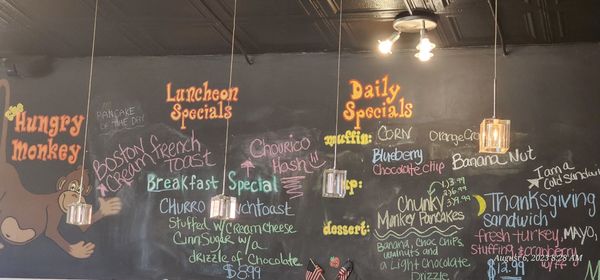 Hungry
Monkey
PANCAKE
OF THE DAY
Boston French
Cream Toast
Luncheon
Specials
Chourico
Hash
Breakfast Special
Stuffed w/ Creamcheese
CinnSugar w/ a
drizzle of Chocolate
$8.99
Daily
Specials
muffin:
CORN
Blueberry
Chocolate chip
Banana Nut
dessert:
Chunky
Monkey Pancakes
1 $3.99
2 $7.99
3 $9.99
Banana, Choc chips
and a Light Chocolate
Drizzle
I am a
Cold Sandwich
Thanksgiving
Sandwich
fresh turkey, MAYO,
Stuffing & cranberry
$13.99
August 6, 2023 8:28 AM